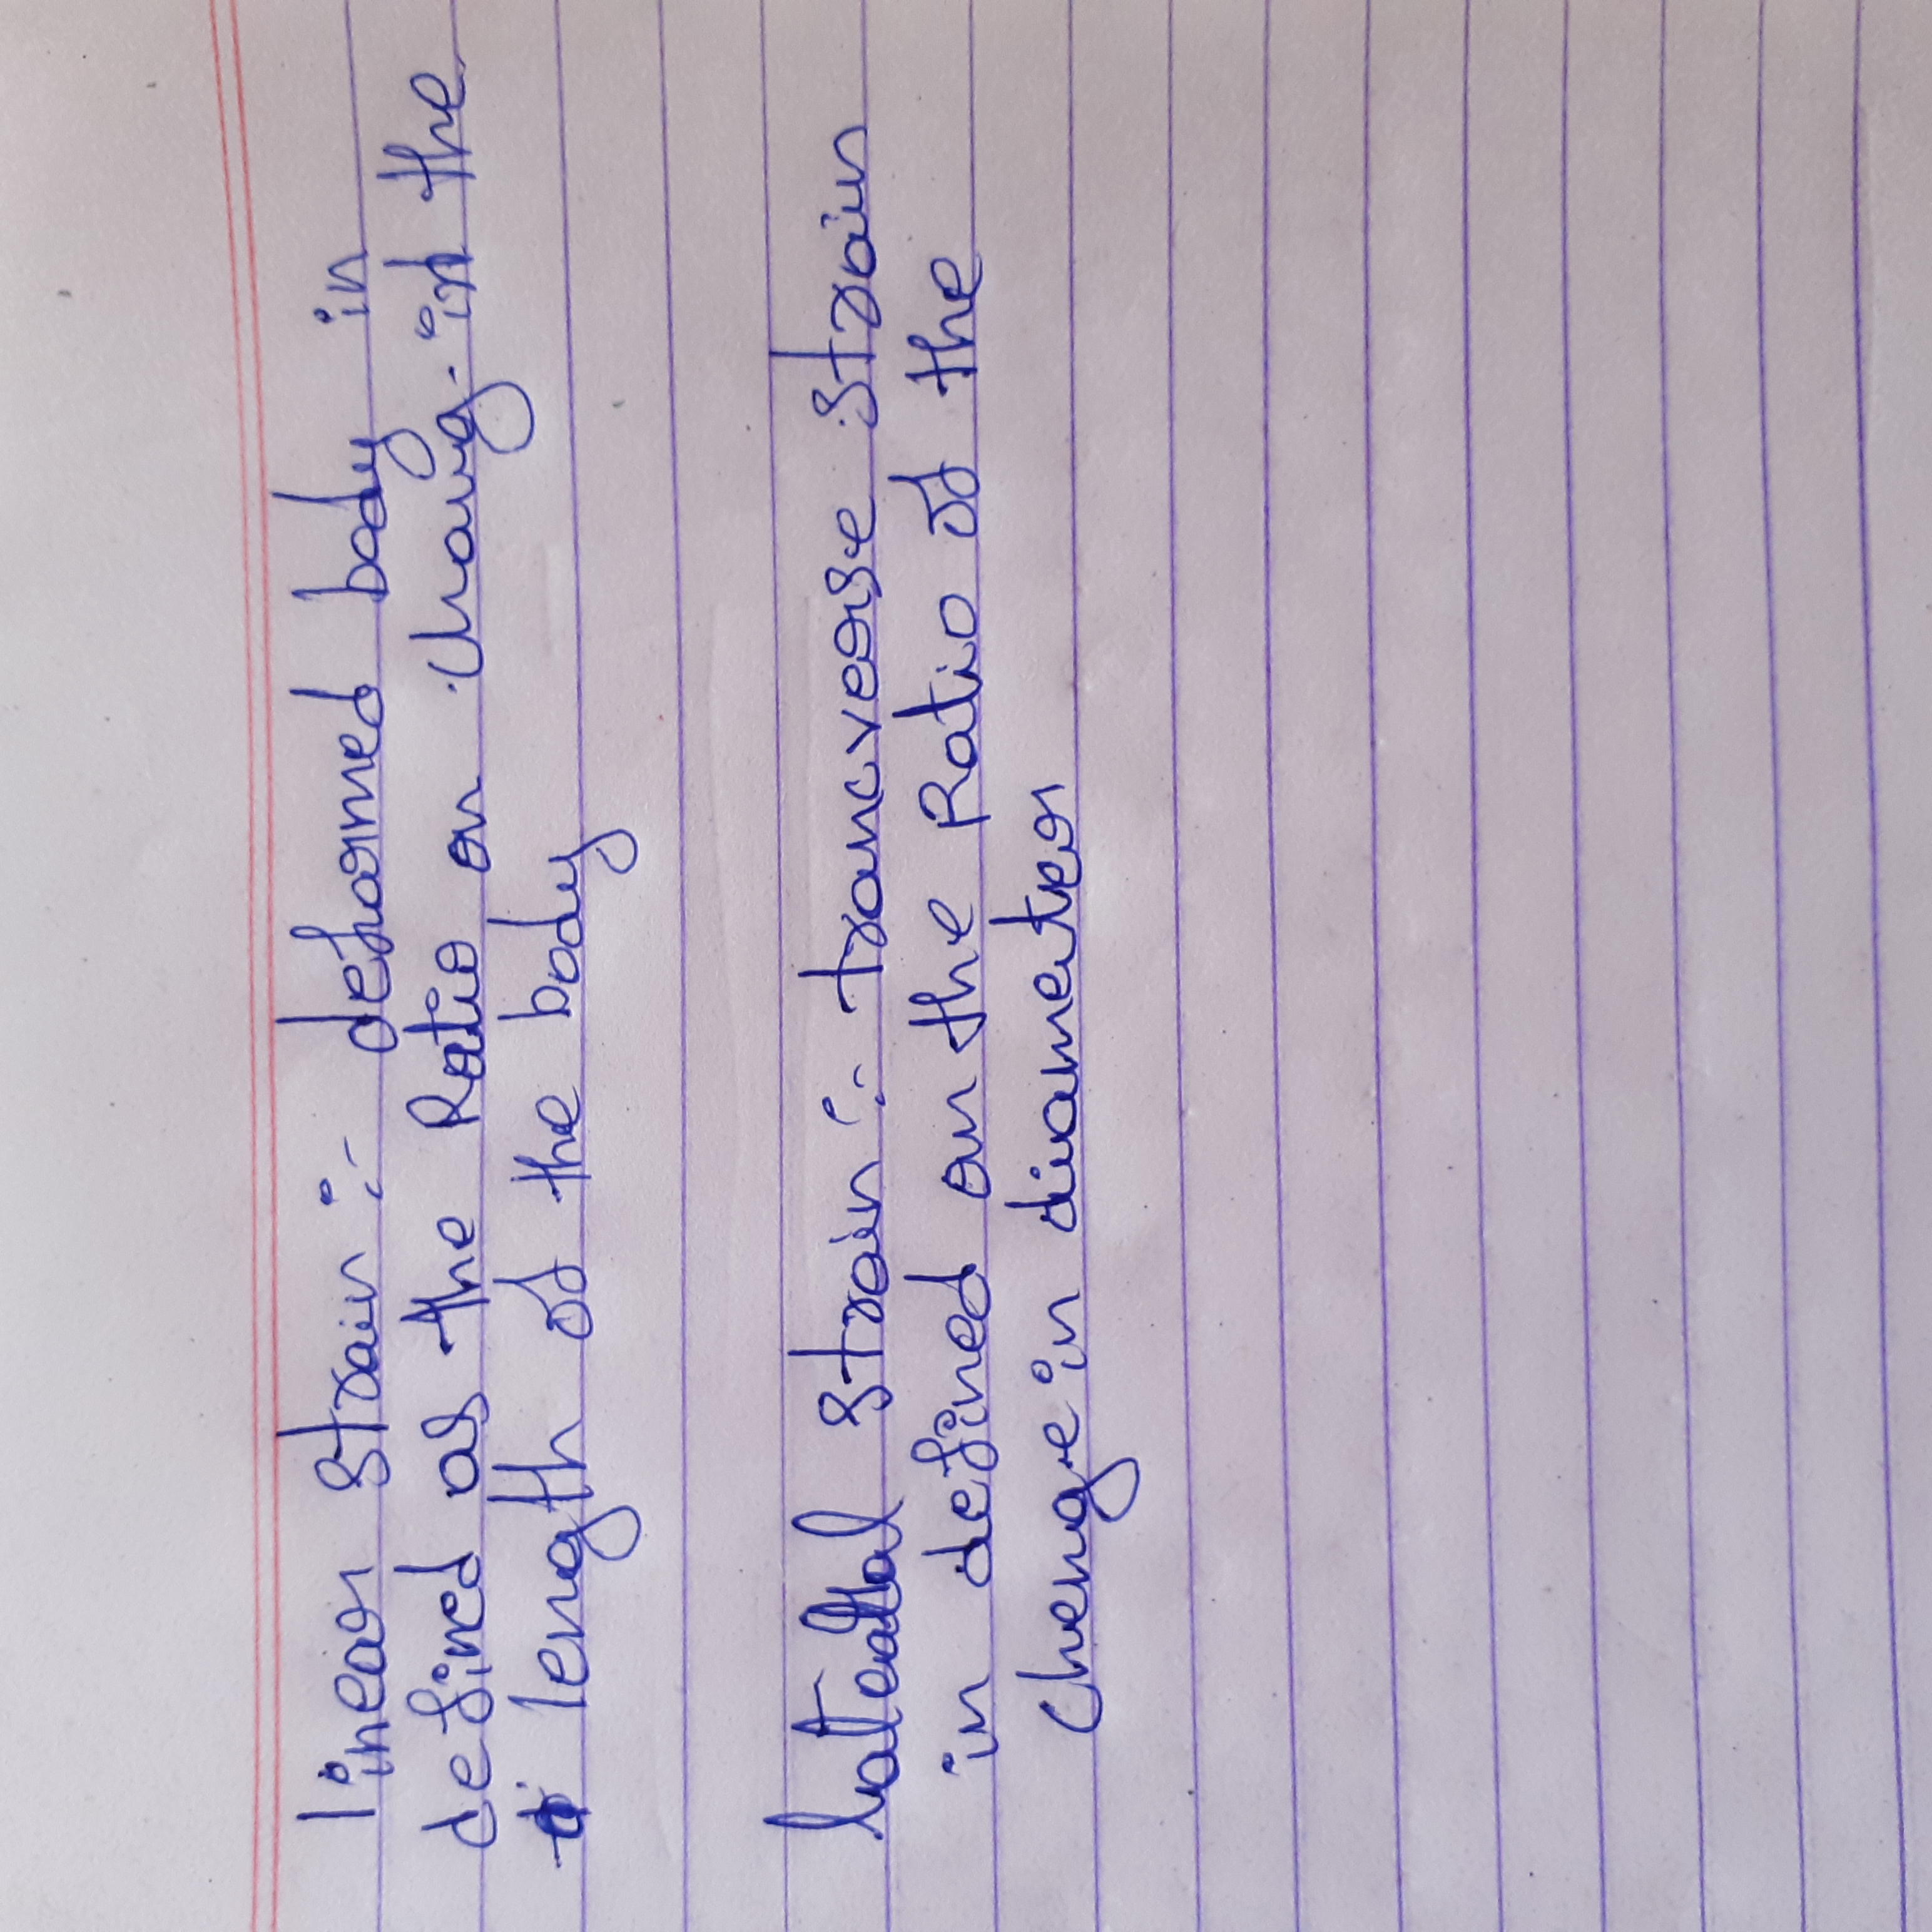 linear strain :- deformed body in
defined as the Ratio on chang in the
length of the body
strain :- trancverse strain
in defined on the Ratio of the
chenge in diameter